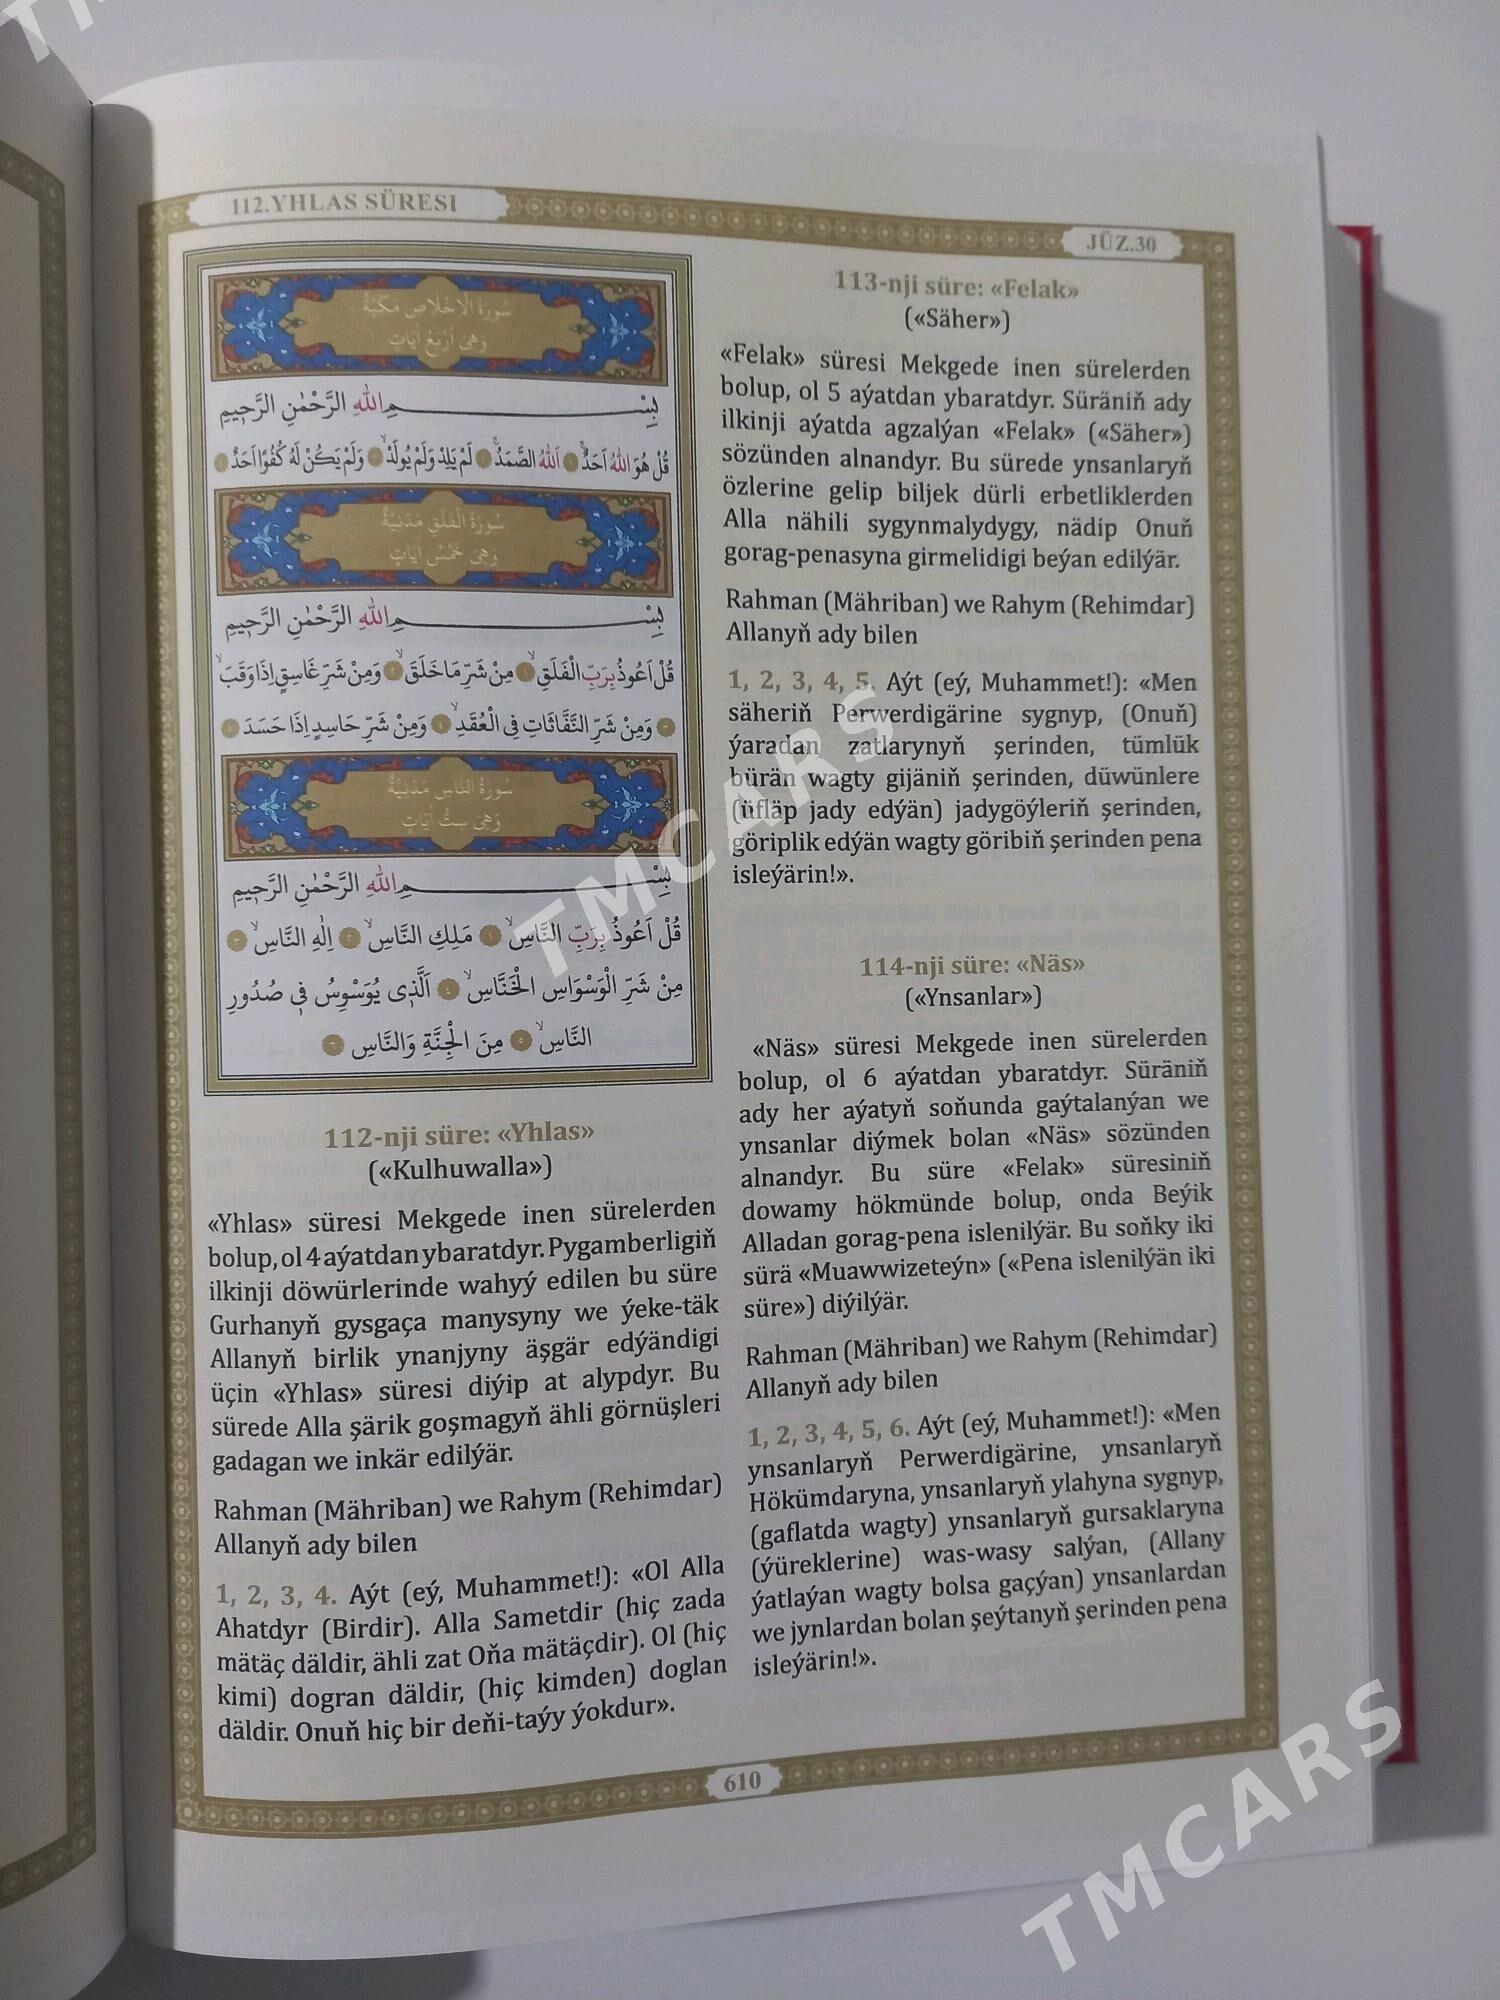 112.YHLAS SÜRESI
JÜZ.30
سورة الاخلاص مكية
وهى اربع ايات
بِسْمِ اللّٰهِ الرَّحْمٰنِ الرَّح۪يمِ
قُلْ هُوَ اللّٰهُ اَحَدٌۚ ١ اَللّٰهُ الصَّمَدُۚ ٢ لَمْ يَلِدْ وَلَمْ يُولَدْۙ ٣ وَلَمْ يَكُنْ لَهُ كُفُوًا اَحَدٌ ٤
سورة الفلق مدنية
وهى خمس ايات
بِسْمِ اللّٰهِ الرَّحْمٰنِ الرَّح۪يمِ
قُلْ اَعُوذُ بِرَبِّ الْفَلَقِۙ ١ مِنْ شَرِّ مَا خَلَقَۙ ٢ وَمِنْ شَرِّ غَاسِقٍ اِذَا وَقَبَۙ
٣ وَمِنْ شَرِّ النَّفَّاثَاتِ فِي الْعُقَدِۙ ٤ وَمِنْ شَرِّ حَاسِدٍ اِذَا حَسَدَ ٥
سورة الناس مدنية
وهى ست ايات
بِسْمِ اللّٰهِ الرَّحْمٰنِ الرَّح۪يمِ
قُلْ اَعُوذُ بِرَبِّ النَّاسِۙ ١ مَلِكِ النَّاسِۙ ٢ اِلٰهِ النَّاسِۙ ٣
مِنْ شَرِّ الْوَسْوَاسِ الْخَنَّاسِۙ ٤ اَلَّذ۪ي يُوَسْوِسُ ف۪ي صُدُورِ
النَّاسِۙ ٥ مِنَ الْجِنَّةِ وَالنَّاسِ ٦
112-nji süre: «Yhlas»
(«Kulhuwalla»)
«Yhlas» süresi Mekgede inen sürelerden
bolup, ol 4 aýatdan ybaratdyr. Pygamberligiň
ilkinji döwürlerinde wahyý edilen bu süre
Gurhanyň gysgaça manysyny we ýeke-täk
Allanyň birlik ynanjyny äşgär edýändigi
üçin «Yhlas» süresi diýip at alypdyr. Bu
sürede Alla şärik goşmagyň ähli görnüşleri
gadagan we inkär edilýär.
Rahman (Mähriban) we Rahym (Rehimdar)
Allanyň ady bilen
1, 2, 3, 4. Aýt (eý, Muhammet!): «Ol Alla
Ahatdyr (Birdir). Alla Sametdir (hiç zada
mätäç däldir, ähli zat Oňa mätäçdir). Ol (hiç
kimi) dogran däldir, (hiç kimden) doglan
däldir. Onuň hiç bir deňi-taýy ýokdur».
113-nji süre: «Felak»
(«Säher»)
«Felak» süresi Mekgede inen sürelerden
bolup, ol 5 aýatdan ybaratdyr. Süräniň ady
ilkinji aýatda agzalýan «Felak» («Säher»)
sözünden alnandyr. Bu sürede ynsanlaryň
özlerine gelip biljek dürli erbetliklerden
Alla nähili sygynmalydygy, nädip Onuň
gorag-penasyna girmelidigi beýan edilýär.
Rahman (Mähriban) we Rahym (Rehimdar)
Allanyň ady bilen
1, 2, 3, 4, 5. Aýt (eý, Muhammet!): «Men
säheriň Perwerdigärine sygnyp, (Onuň)
ýaradan zatlarynyň şerinden, tümlük
bürän wagty gijäniň şerinden, düwünlere
(üfläp jady edýän) jadygöýleriň şerinden,
göriplik edýän wagty göribiň şerinden pena
isleýärin!».
114-nji süre: «Näs»
(«Ynsanlar»)
«Näs» süresi Mekgede inen sürelerden
bolup, ol 6 aýatdan ybaratdyr. Süräniň
ady her aýatyň soňunda gaýtalanýan we
ynsanlar diýmek bolan «Näs» sözünden
alnandyr. Bu süre «Felak» süresiniň
dowamy hökmünde bolup, onda Beýik
Alladan gorag-pena islenilýär. Bu soňky iki
sürä «Muawwizeteýn» («Pena islenilýän iki
süre») diýilýär.
Rahman (Mähriban) we Rahym (Rehimdar)
Allanyň ady bilen
1, 2, 3, 4, 5, 6. Aýt (eý, Muhammet!): «Men
ynsanlaryň Perwerdigärine, ynsanlaryň
Hökümdaryna, ynsanlaryň ylahyna sygnyp,
(gaflatda wagty) ynsanlaryň gursaklaryna
(ýüreklerine) was-wasy salýan, (Allany
ýatlaýan wagty bolsa gaçýan) ynsanlardan
we jynlardan bolan şeýtanyň şerinden pena
isleýärin!».
610
TMCARS
TMCARS